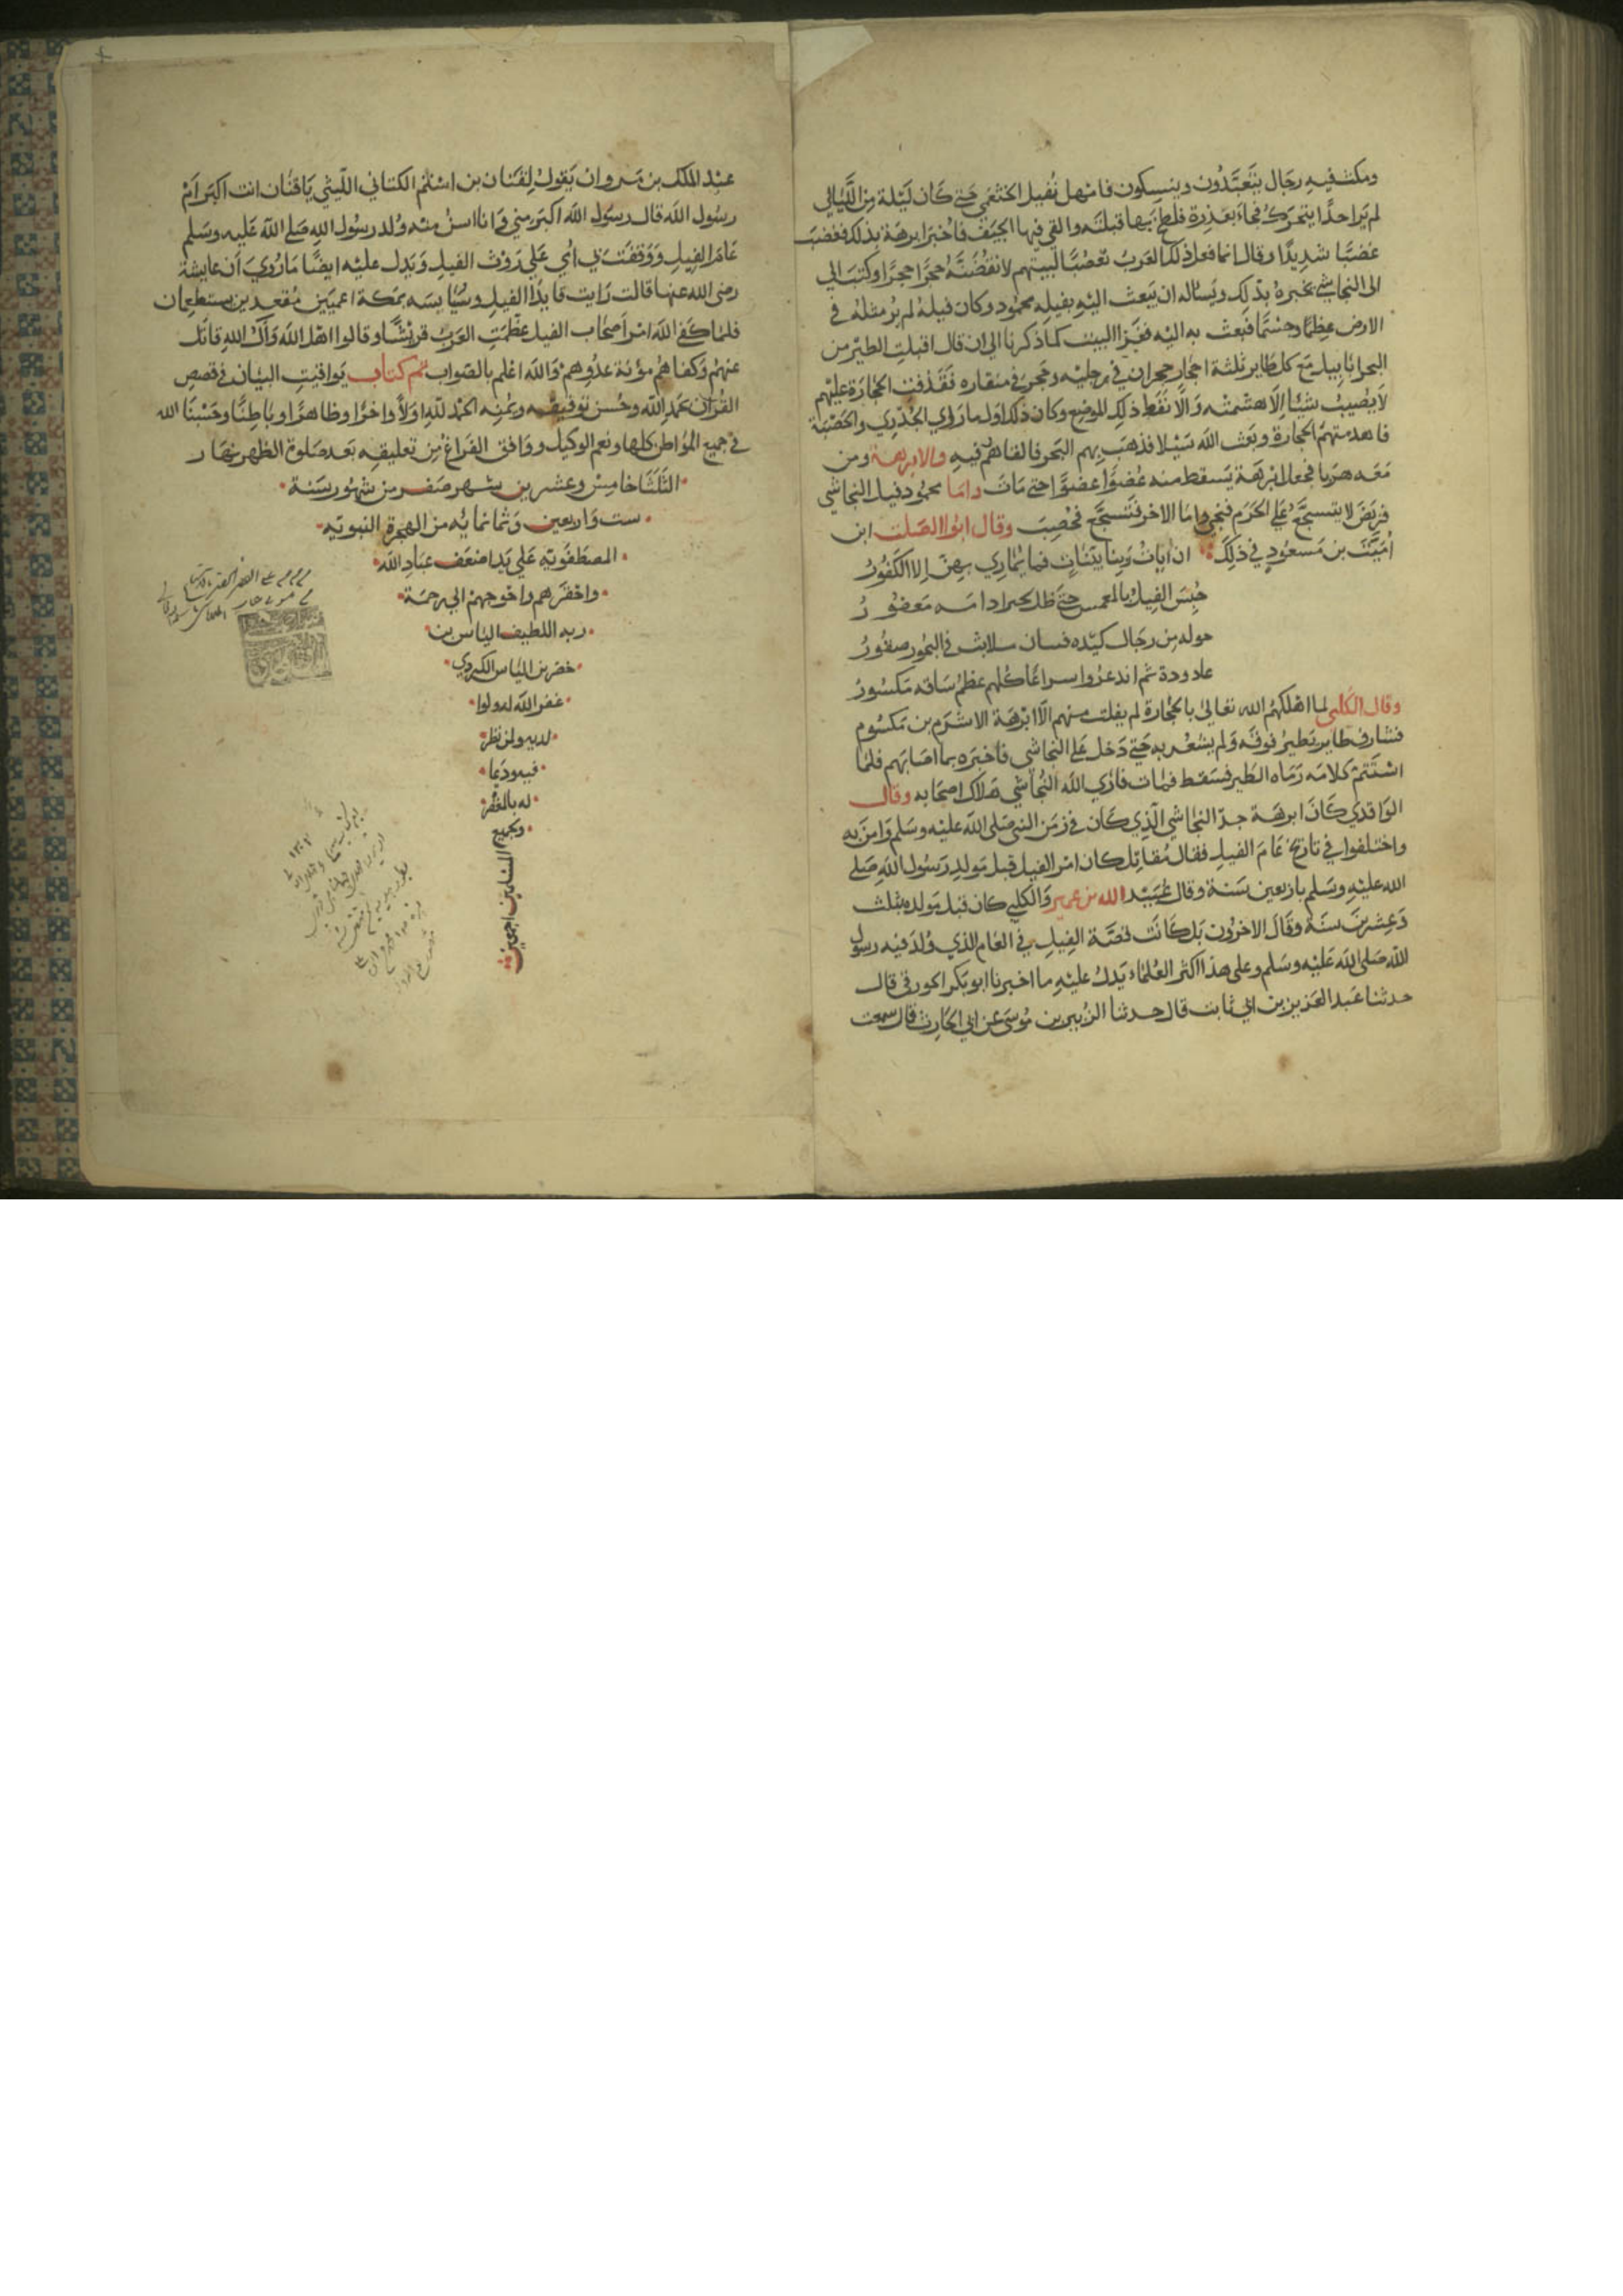 ومكث فيه رجال يتعبدون وينسكون فامهل نفيل الخثعمي حتى كان ليلة من الليالي
لم ير احدا يتحرك فجاء بعذرة فلطخ بها قبلته والقي فيها الجيف فاخبر ابرهة بذلك فغضب
غضبا شديدا وقال انما فعل ذلك العرب تعصبا لبيتهم لانقضنه حجرا حجرا وكتب الي
الى النجاشي يخبره بذلك ويساله ان يبعث اليه بفيله محمود وكان فيله لم ير مثله في
الارض عظما وجسما فبعث به اليه فغزا البيت كما ذكرنا الي ان قال اقبلت الطير من
البحر ابابيل مع كل طاير ثلثة احجار حجران في رجليه وحجر في منقاره فقذفت الحجارة عليهم
لا يصيب شيئا الا هشمته والا نفط ذلك الموضع وكان ذلك اول ما روي الجدري والحصبة
فاهدمتهم الحجارة وبعث الله سيلا فذهب بهم البحر فالقاهم فيه والابرهة ومن
معه هربا فجعل ابرهة يسقط منه عضوا عضوا حتى مات واما محمود فيل النجاشي
فربض لا يتسجع علي الحرم فنجي واما الاخر فتسجع فحصب وقال ابوا الصلت ابن
امية بن مسعود في ذلك ان ايات ربنا بينات فما يماري بهن الا الكفور
حبس الفيل بالمغمس حتى ظل
حوله من رجال كنده فسان
ثم اندعروا سراعا كلهم عظم ساقه مكسور
وقال الكلبي لما اهلكهم الله تعالي بالحجارة لم يفلت منهم الا ابرهة الاشرم بن مكسوم
فسار فطاير يطير فوقه ولم يشعر به حتي دخل علي النجاشي فاخبره بما اصابهم فلما
استتم كلامه رماه الطير فسقط فمات فاري الله النجاشي هلاك اصحابه وقال
الواقدي كان ابرهة جد النجاشي الذي كان في زمن النبي صلى الله عليه وسلم وامن به
واختلفوا في تاريخ عام الفيل فقال مقاتل كان امر الفيل قبل مولد رسول الله صلي
الله عليه وسلم باربعين سنة وقال عبيد الله بن عمير والكلبي كان قبل مولده بثلث
وعشرين سنة وقال الاخرون بل كانت قصة الفيل في العام الذي ولد فيه رسول
الله صلى الله عليه وسلم وعلى هذا اكثر العلماء يدل عليه ما اخبرنا ابو بكر الجورقي قال
حدثنا عبد العزيز بن ابي ثابت قال حدثنا الزبير بن موسى عن ابي الحارث قال سمعت
عبد الملك بن مروان يقول لقنان بن اشلم الكناني الليثي يا قنان انت اكبر ام
رسول الله قال رسول الله اكبر مني وانا اسن منه ولد رسول الله صلى الله عليه وسلم
عام الفيل ووقفت بي امي علي روث الفيل ويدل عليه ايضا ما روي ان عايشة
رضي الله عنها قالت رايت قايد الفيل وسايسه بمكة اعميين مقعدين يستطعمان
فلما كفي الله امر اصحاب الفيل عظمت العرب قريشا وقالوا اهل الله وال الله قاتل
عنهم وكفاهم مؤنة عدوهم والله اعلم بالصواب تم كتاب يواقيت البيان في قصص
القران بحمد الله وحسن توفيقه وعونه الحمد لله اولا واخرا وظاهرا وباطنا وحسبنا الله
في جميع المواطن كلها ونعم الوكيل ووافق الفراغ من تعليقه بعد صلوة الظهر نهار
الثلثا خامس وعشرين شهر صفر من شهور سنة
ست واربعين وثمانمايه من الهجرة النبويه
المصطفويه علي يد اضعف عباد الله
واحقرهم واحوجهم الي رحمة
ربه اللطيف الياس بن
خضر بن الياس الكردي
غفر الله له ولوا
لديه ولمن نظر
فيه ودعا
له بالمغفر
ولجميع
المسلمين اجمعين